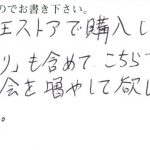 のでお書き下さい。
王ストアで購入し
り」も含めて、こちらで
会を増やして欲し
。